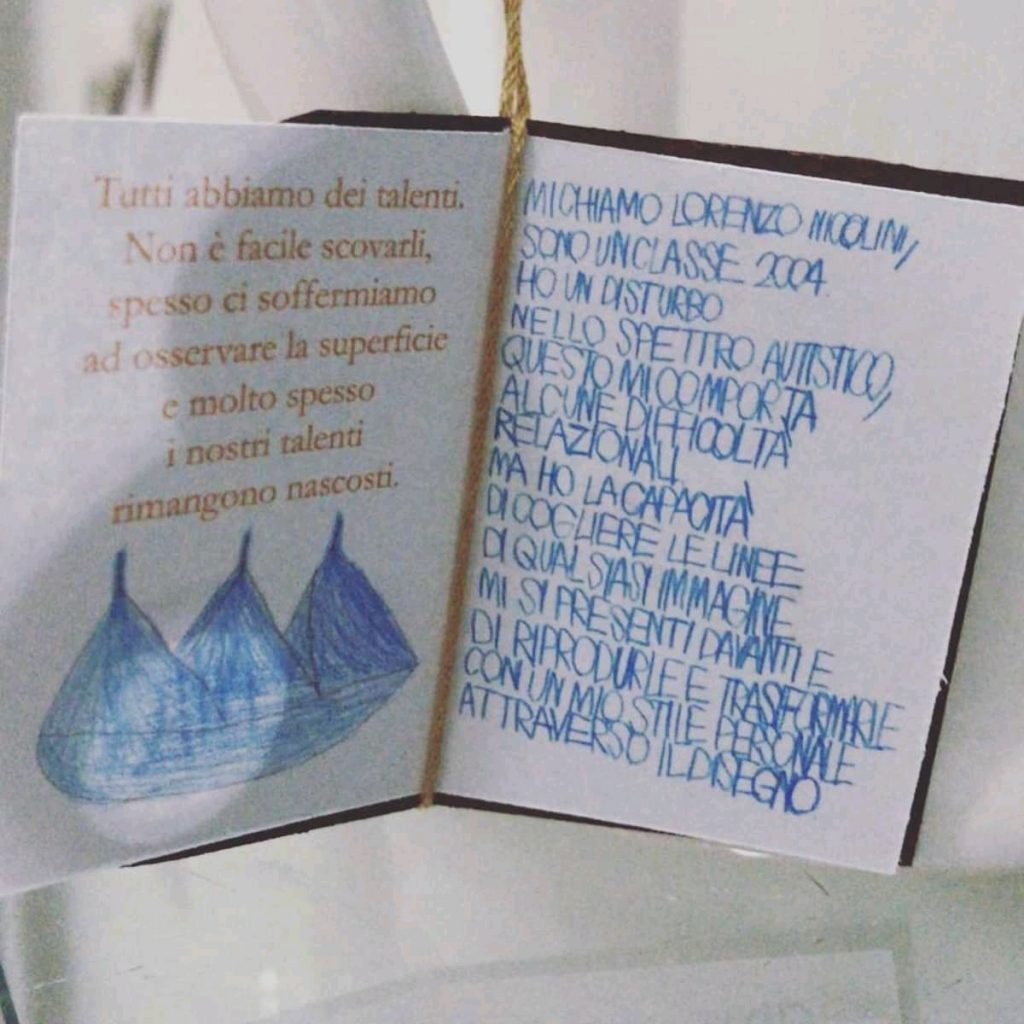 Tutti abbiamo dei talenti.
Non è facile scovarli,
spesso ci soffermiamo
ad osservare la superficie
e molto spesso
i nostri talenti
rimangono nascosti.
MI CHIAMO LORENZO
SONO UN CLASSE 2004.
HO UN DISTURBO
NELLO SPETTRO AUTISTICO,
QUESTO MI COMPORTA
ALCUNE DIFFICOLTÀ
RELAZIONALI
MA HO LA CAPACITÀ
DI COGLIERE LE LINEE
DI QUALSIASI IMMAGINE
MI SI PRESENTI DAVANTI E
DI RIPRODURLE E TRASFORMARLE
CON UN MIO STILE PERSONALE
ATTRAVERSO IL DISEGNO